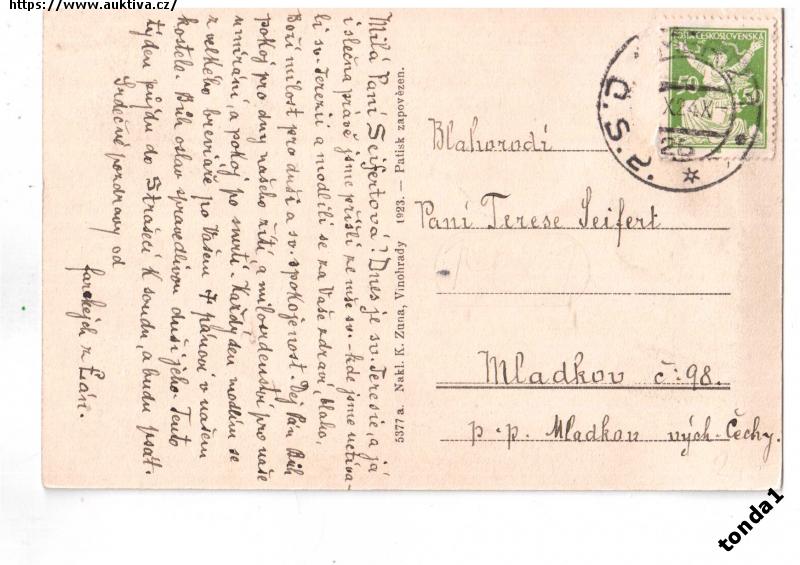 https://www.auktiva.cz/
Milá Paní Seifertová! Dnes je sv. Terezie, a já
i slečna právě jsme přišli ze mše sv. - kde jsme uctíva-
li sv. Terezii a modlili se za Vaše zdraví, blaho,
Boží milost pro duši a sv. spokojenost. Dej Pán Bůh
pokoj pro dny našeho žití, a milosrdenství pro naše
umírání, a pokoj po smrti. Každý den modlím se
z velkého breviáře po Vašem † pánovi v našem
kostele. Bůh oslav spravedlivou duši jeho. Tento
týden půjdu do Strašecí k soudu, a budu psát.
Srdečné pozdravy od
farských z Lán.
5377 a. Nakl. K. Zuna, Vinohrady 1923. — Patisk zapovězen.
POŠTA ČESKOSLOVENSKÁ
50 50
Č.S.P.
Blahorodí
Paní Terese Seifert
Mladkov č: 98.
p. p. Mladkov vých. Čechy.
tonda1